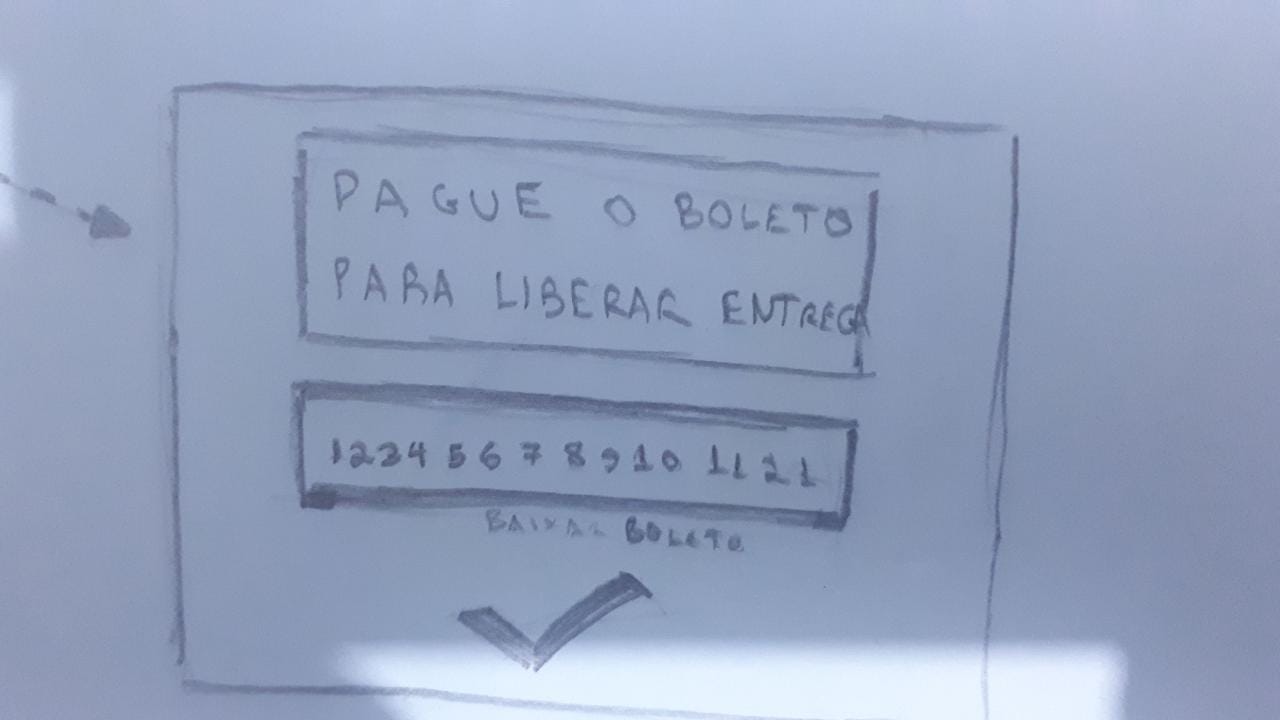 PAGUE O BOLETO
PARA LIBERAR ENTREGA
1234 5 6 7 8 9 10 11 21
BAIXAR BOLETO